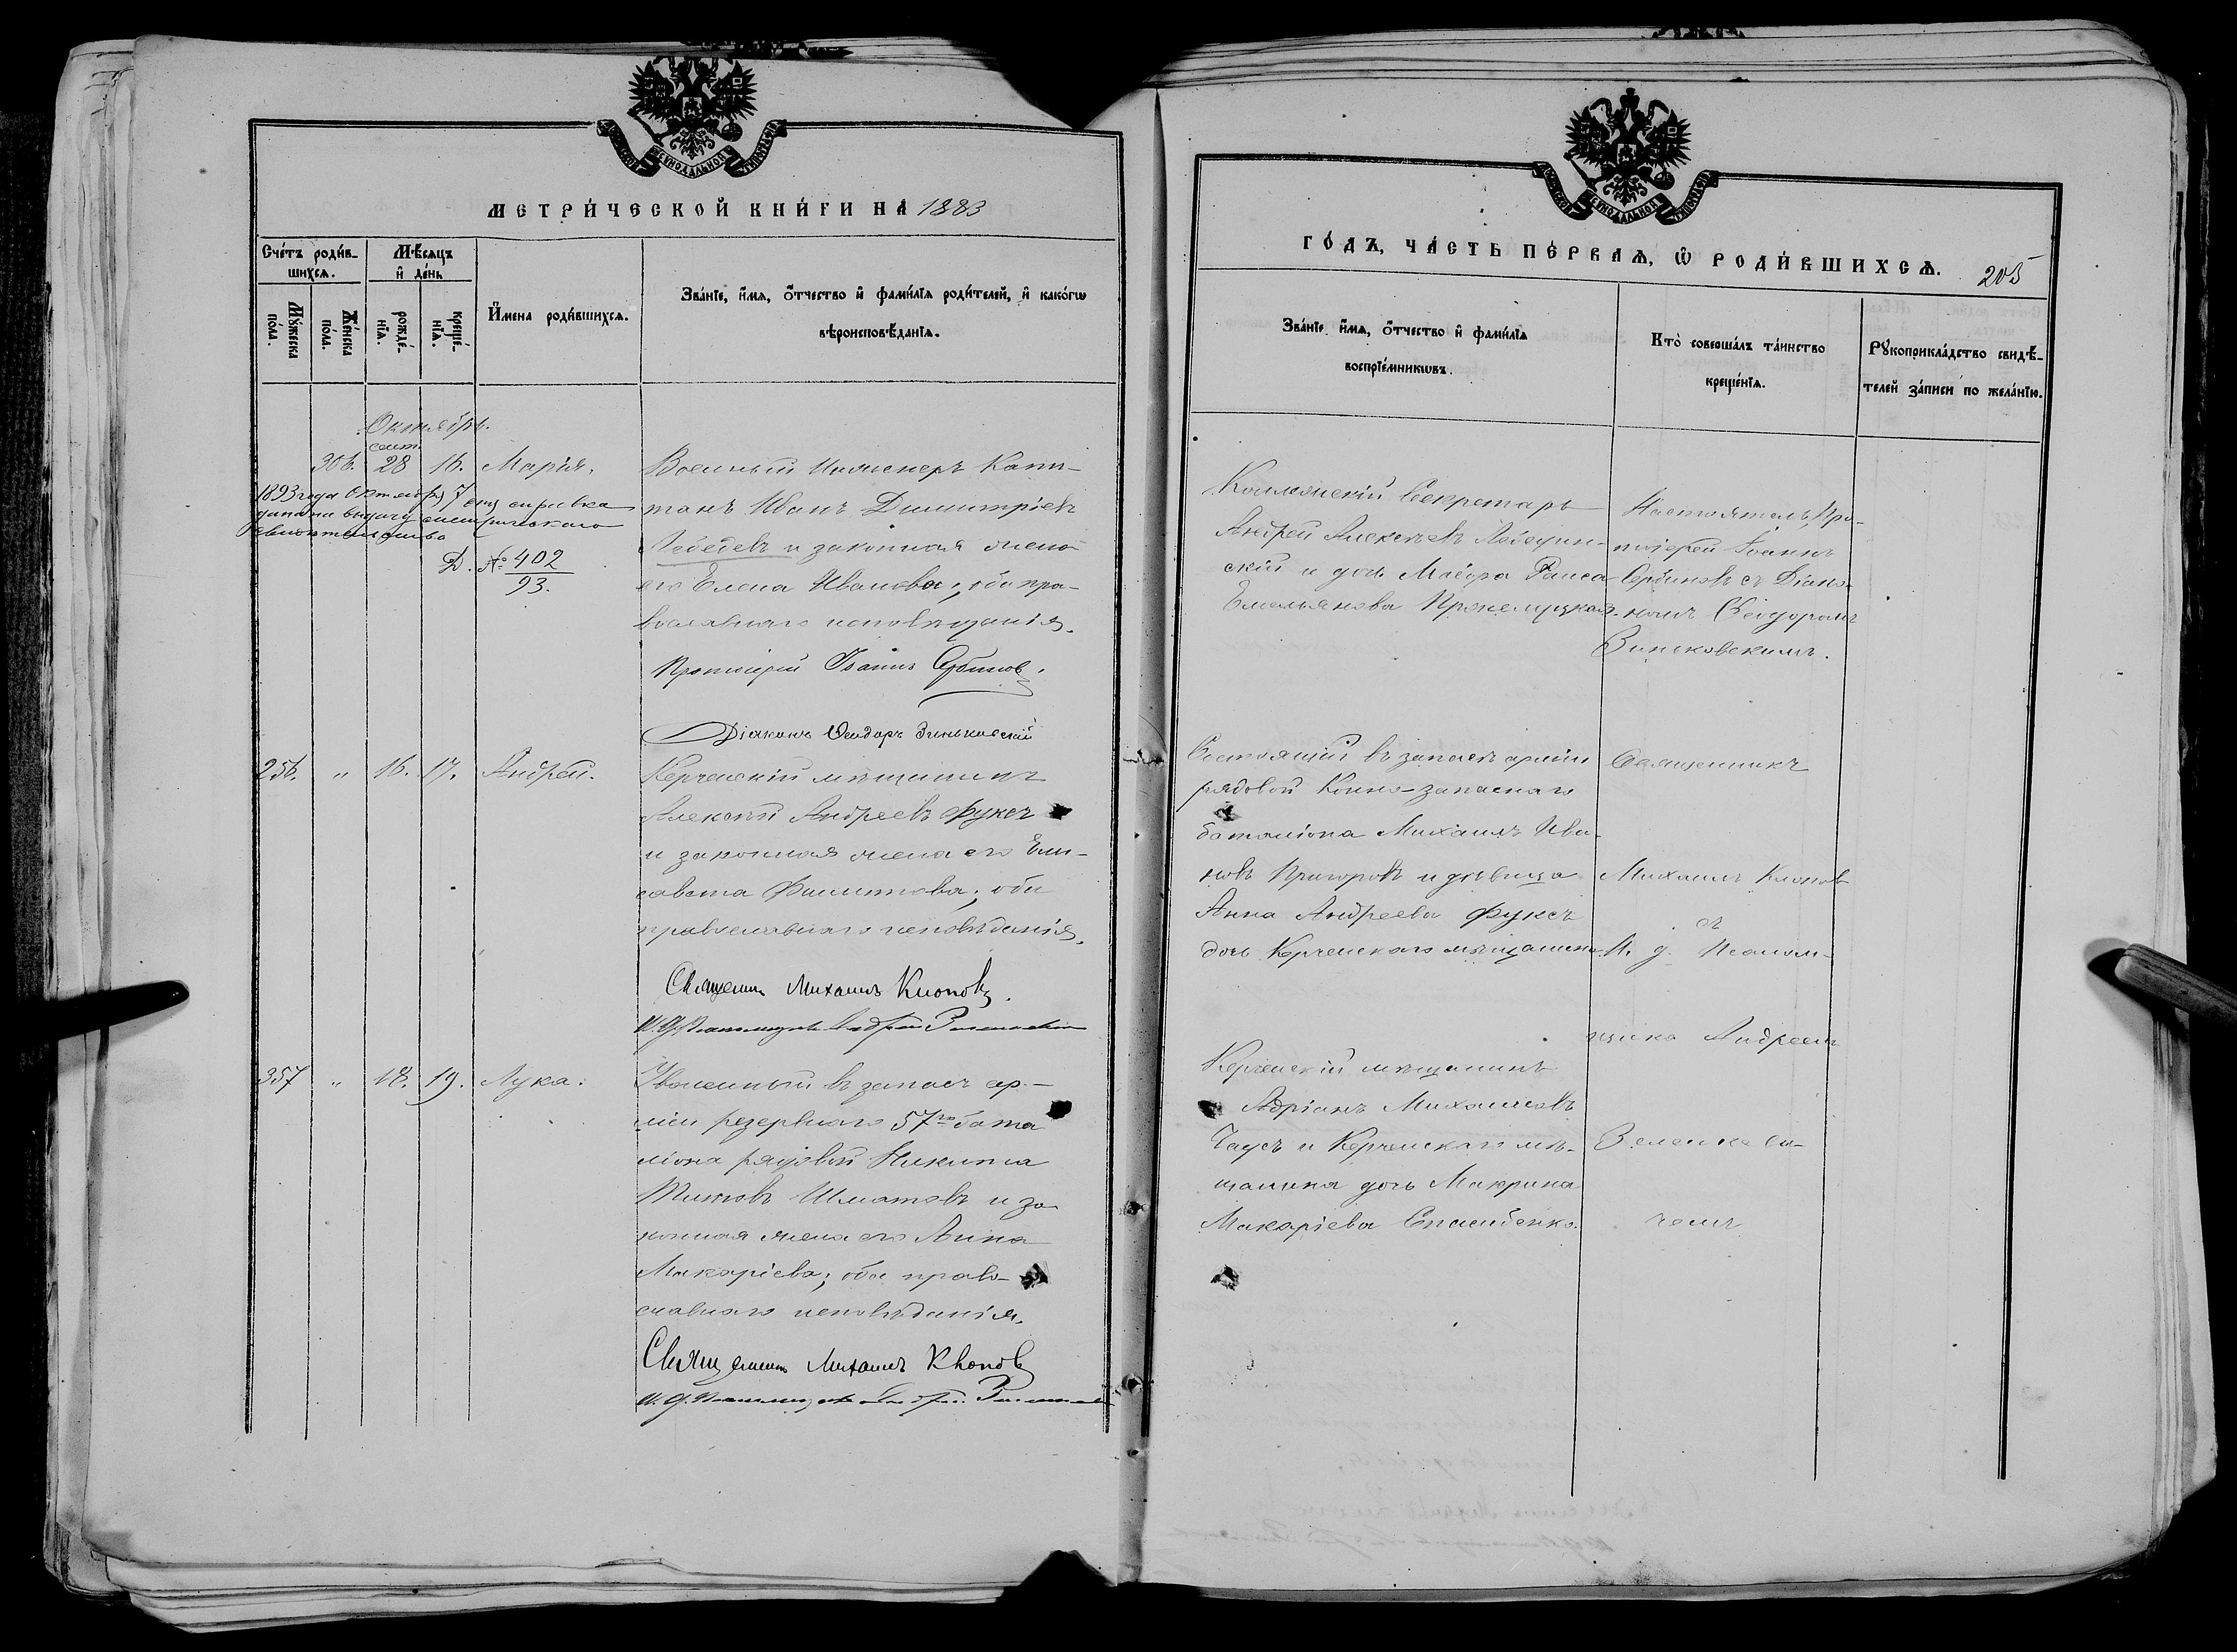 МЕТРИ́ЧЕСКОЙ КНИ́ГИ НА 1883
Сче́тъ роди́в-
шихсѧ.
Мѣ́сяцъ
и҆ де́нь
Мꙋ́жеска
по́ла.
Же́нска
по́ла.
рожде́-
нїѧ.
креще́-
нїѧ.
И҆мена роди́вшихсѧ.
Зва́нїе, и҆́мѧ, ѻ҆́тчество и҆ фами́лїѧ роди́телей, и҆ како́гѡ
вѣроисповѣ́данїѧ.
Октябрь.
сент.
306. 28 16. Марія.
1893 года Октября 7 дня справка
дана на выдачу метрическаго
свидетельства
Д. № 402
93.
Военный Инженеръ Капи-
танъ Иванъ Димитріевъ
Лебедевъ и законная жена
его Елена Иванова, оба пра-
вославнаго исповѣданія.
Протоіерей Іоаннъ Сербиновъ.
Діаконъ Ѳеодоръ Зиньковскій
256. " 16. 17. Андрей.
Керченскій мѣщанинъ
Алексѣй Андреевъ Фуксъ
и законная жена его Ели-
савета Филиппова; оба
православнаго исповѣданія.
Священникъ Михаилъ Клоповъ.
И. д. Псаломщика Андрей
357 " 18. 19. Лука.
Уволенный въ запасъ ар-
міи резервнаго 57го бата
ліона рядовой Никита
Титовъ Шматовъ и за
конная жена его Анна
Макаріева; оба право-
славнаго исповѣданія.
Священникъ Михаилъ Клоповъ
И. д. Псаломщика Андрей
ГО́ДЪ, ЧА́СТЬ ПЕ́РВАѦ, Ѡ҆ РОДИ́ВШИХСѦ. 205
Зва́нїе, и҆́мѧ, ѻ҆́тчество и҆ фами́лїѧ
воспрїе́мникѡвъ.
Кто̀ соверша́лъ та́инство
креще́нїѧ.
Рꙋкоприкла́дство свидѣ́-
телей за́писи по жела́нїю.
Коллежскій Секретарь
Андрей Алексѣевъ Лебедин-
скій и дочь Маіора Раиса
Емельянова
Настоятель Про-
тоіерей Іоаннъ
Сербиновъ съ Діако-
номъ Ѳеодоромъ
Зиньковскимъ.
Состоящій въ запасѣ арміи
рядовой Конно-запаснаго
баталіона Михаилъ Ива-
новъ Пригоровъ и дѣвица
Анна Андреева Фуксъ
дочь Керченскаго мѣщанина
Священникъ
Михаилъ Клоповъ
съ
И. д. Псалом-
щика Андреемъ
Зеленкеви-
чемъ
Керченскій мѣщанинъ
Адріанъ Михайловъ
Чаусъ и Керченскаго мѣ-
щанина дочь Макрина
Макаріева Спасибенко.